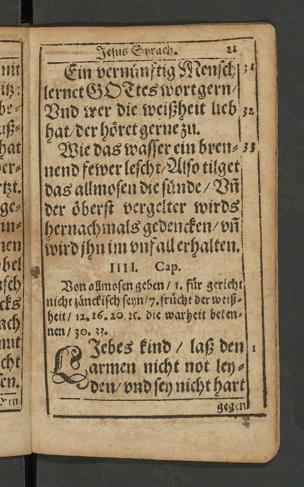 Jesus Syrach. 21
Ein vernünftig Mensch 31
lernet GOttes wort gern/
Vnd wer die weißheit lieb 32
hat/ der höret gerne zu.
Wie das wasser ein bren- 33
nend fewer lescht/ Also tilget
das allmosen die sünde/ Vñ
der öberst vergelter wirds
hernachmals gedencken/ vñ
wird jhn im vnfall erhalten.
IIII. Cap.
Von allmosen geben/ 1. für gericht
nicht zänckisch seyn/ 7. frücht der weiß-
heit/ 12. 16. 20. ꝛc. die warheit beken-
nen/ 30. 33.
LJebes kind/ laß den 1
armen nicht not ley-
den/ vnd sey nicht hart
gegen